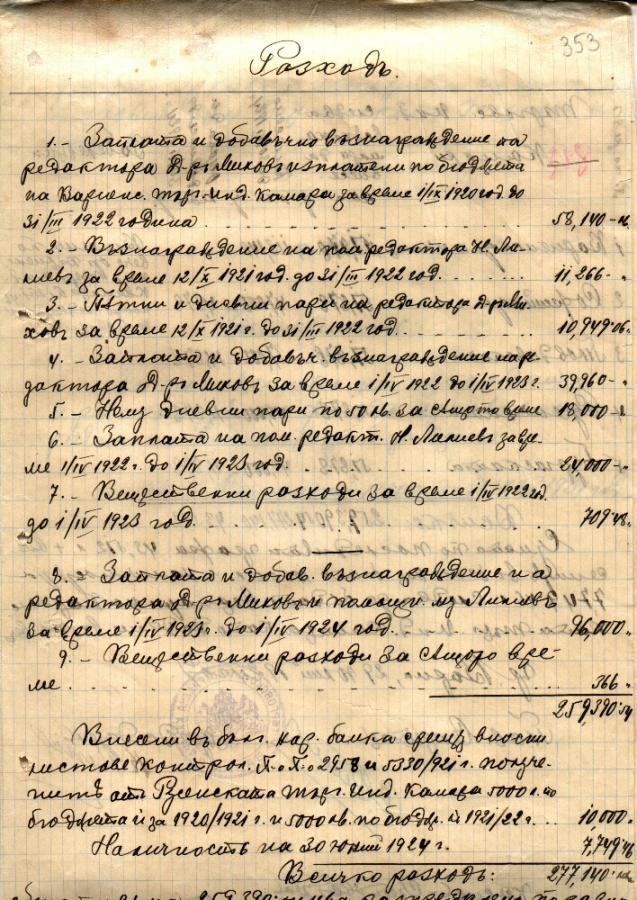 353
Розходъ.
1.- Заплата и добавъчно възнаграждение на
редактора Д-ръ Миковъ изплатени по бюджета
на Варненс. търг. инд. Камара за време 1/IX 1920 год. до
31/III 1922 година 58,140 -
2.- Възнаграждение на пом. редактора Н. Ла-
лиевъ за време 12/X 1921 год. до 31/III 1922 год. 11,266 -
3.- Пътни и дневни пари на редактора Д-ръ Ми-
ковъ за време 12/X 1921 г. до 31/III 1922 год. 10,949.06
4.- Заплата и добавъч. възнаграждение на ре-
дактора Д-ръ Миковъ за време 1/IV 1922 до 1/IV 1923 г. 39,960 -
5.- Нему дневни пари по 50 лв. за същото време 18,000 -
6.- Заплата на пом. редакт. Н. Лалиевъ за вре-
ме 1/IV 1922 г. до 1/IV 1923 год. 24,000 -
7.- Веществени разходи за време 1/IV 1922 год.
до 1/IV 1923 год. 709.48
8. Заплата и добав. възнаграждение на
редактора Д-ръ Миковъ и помощн. му Лалиевъ
за време 1/IV 1923 г. до 1/IV 1924 год. 96,000 -
9.- Веществени разходи за същото вре-
ме 366 -
259,390.54
Внесени въ бълг. нар. банка срещу вносни
листове контрол. 2958 и 5330/921 г. получе-
нитѣ отъ Русенската търг. инд. Камара 5000 л. по
бюджета ѝ за 1920/1921 г. и 5000 лв. по бюдж. 1921/22 г. 10,000 -
Наличность на 30 юний 1924 г. 7,749.46
Всичко розходъ: 277,140 -
259,390